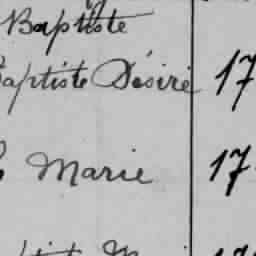 Baptiste
Baptiste Désiré 17
Marie 17